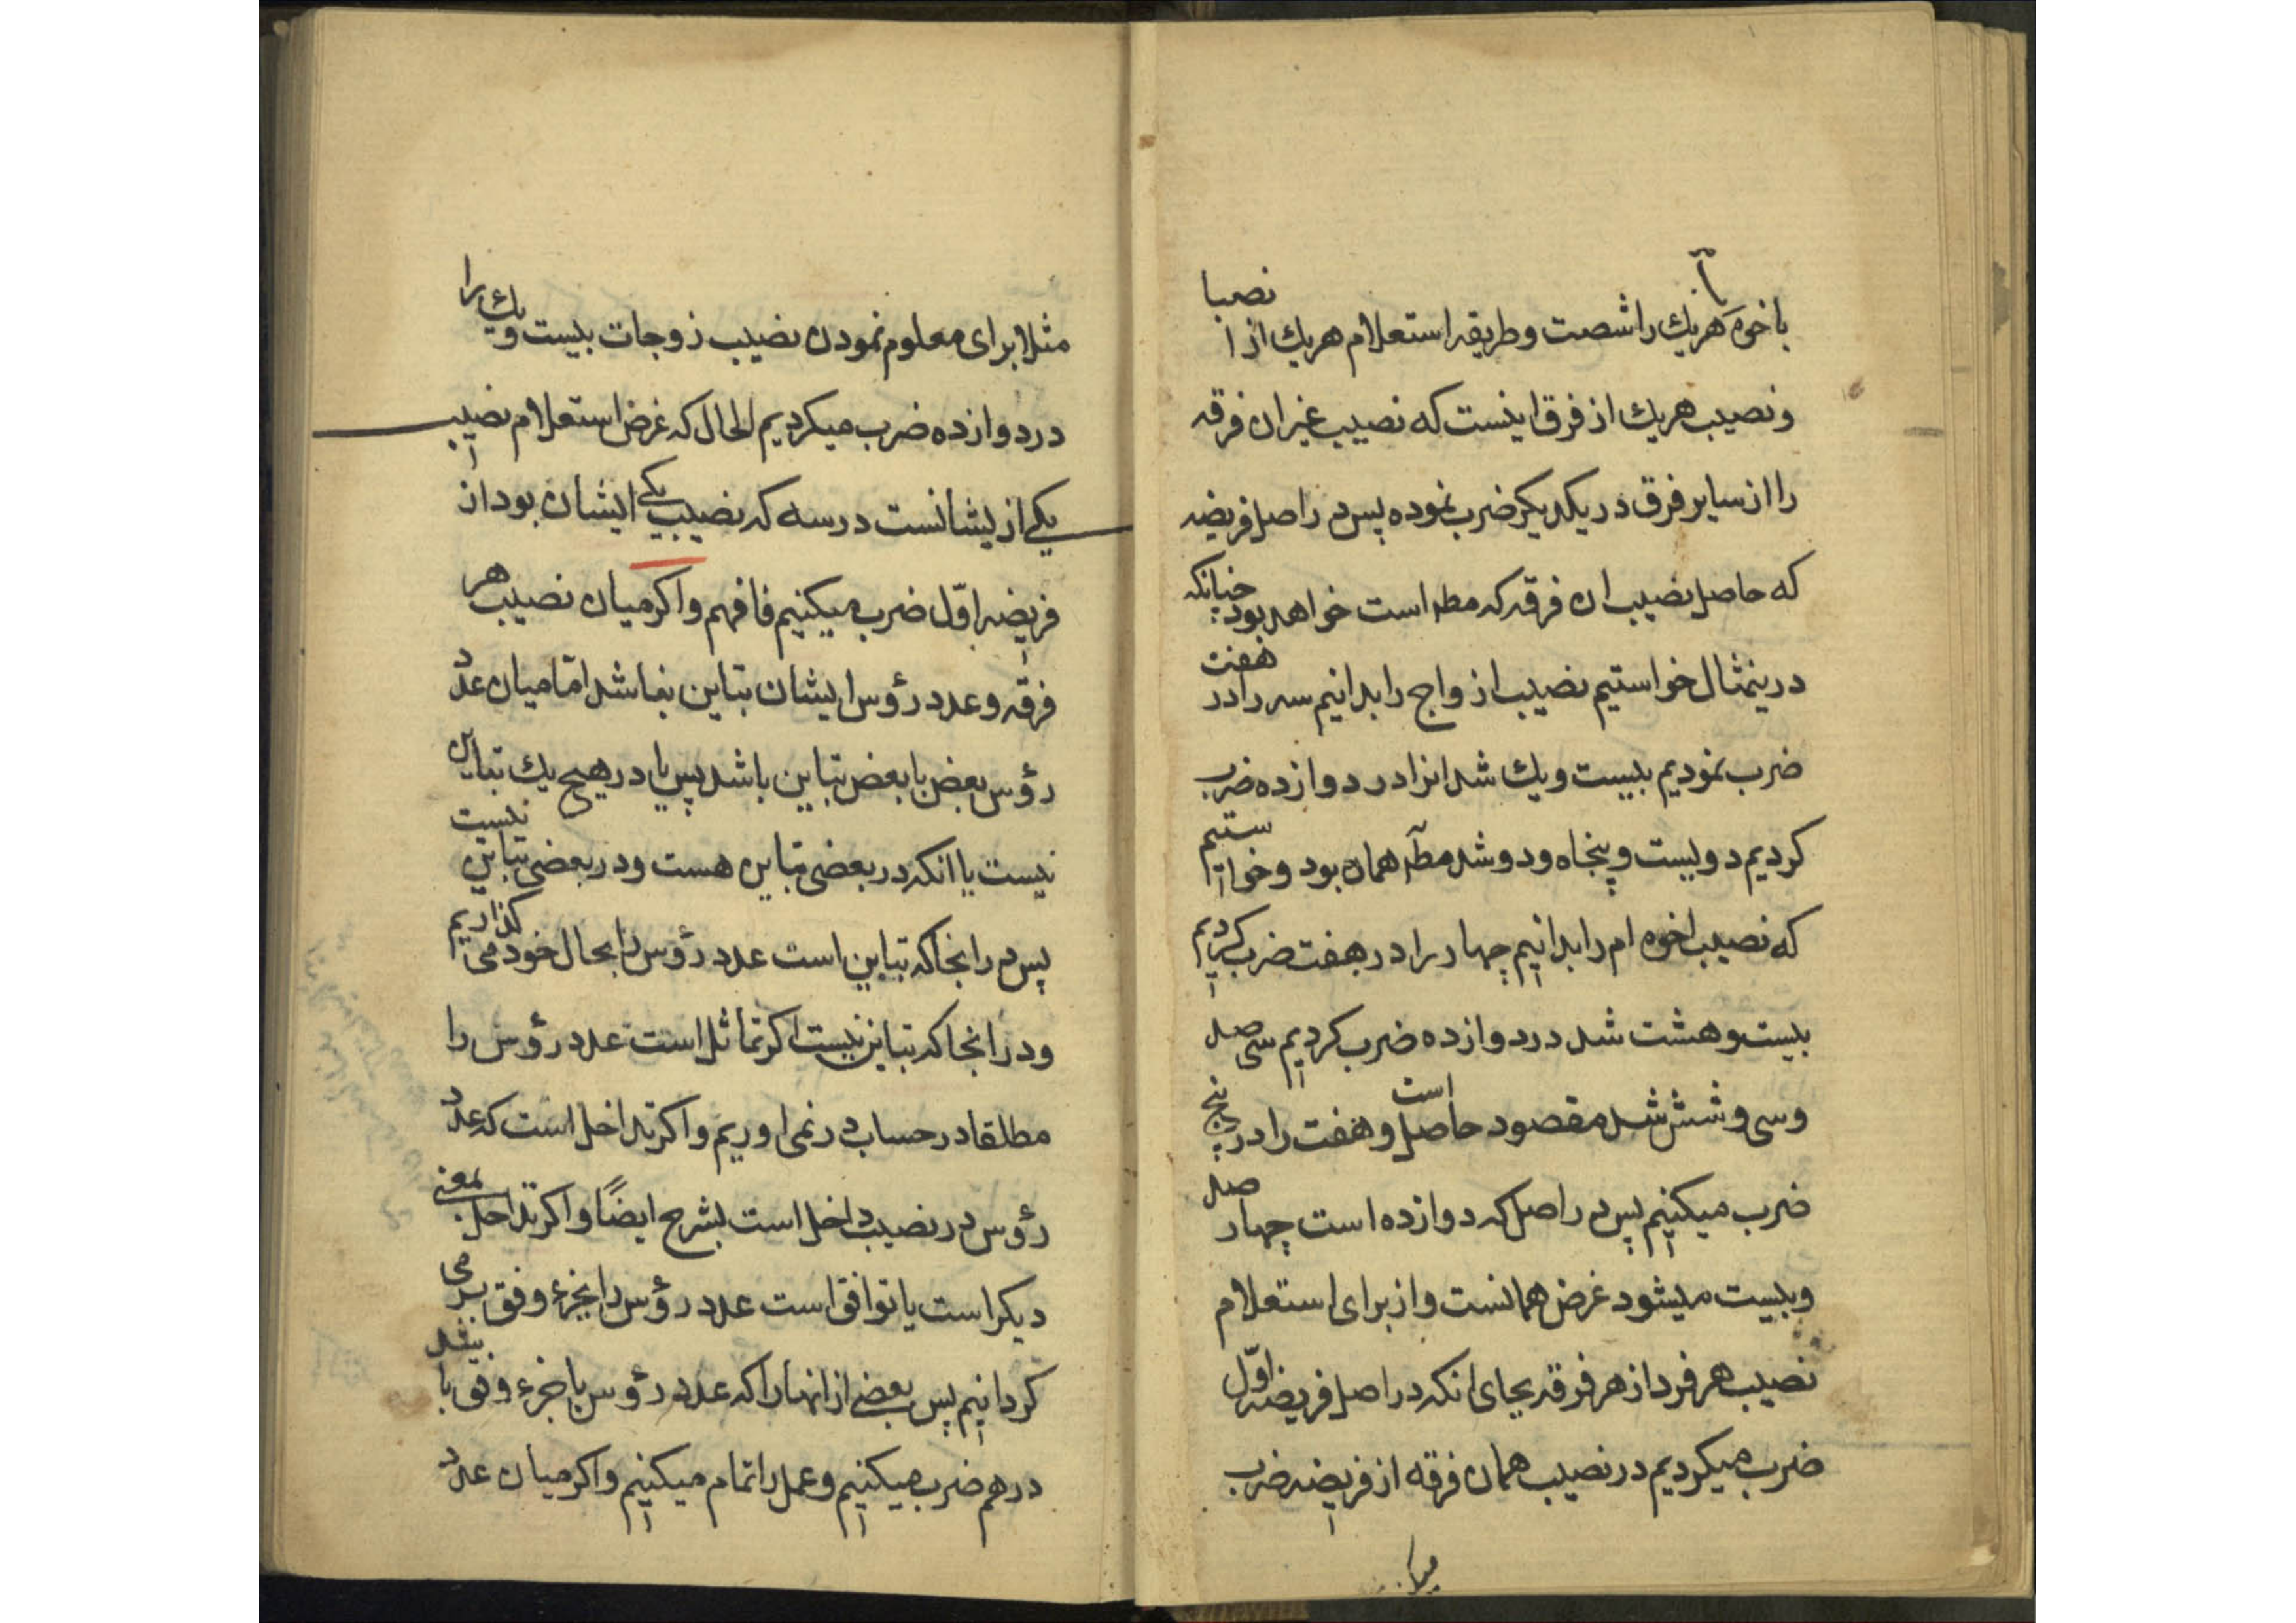 با خوه هریك را شصت وطریقه استعلام هریك از انصبا
ونصیب هریك از فرق اینست که نصیب غیر ان فرقه
را از سایر فرق در یکدیکر ضرب نموده پس در اصل فریضه
که حاصل نصیب ان فرقه که مطلـ است خواهد بود چنانکه
درینمثال خواستیم نصیب ازواج را بدانیم سه را در هفت
ضرب نمودیم بیست ویك شد انرا در دوازده ضرب
کردیم دویست وپنجاه ودو شد مطلـ همان بود وخواستیم
که نصیب اخوه ام را بدانیم چهار را در هفت ضرب کردیم
بیست وهشت شد در دوازده ضرب کردیم سی صد
وسی وشش شد مقصود حاصل است وهفت را در پنج
ضرب میکنیم پس در اصل که دوازده است چهار صد
وبیست میشود غرض همانست واز برای استعلام
نصیب هر فرد از هر فرقه بجای انکه در اصل فریضه اوّل
ضرب میکردیم در نصیب همان فرقه از فریضه ضرب
میکـ
مثلا برای معلوم نمودن نصیب زوجات بیست ویك را
در دوازده ضرب میکردیم الحال که غرض استعلام نصیب
یکی از یشانست در سه که نصیب یکی ایشان بود از
فریضه اوّل ضرب میکنیم فافهم واکر میان نصیب هر
فرقه وعدد رؤس ایشان تباین نباشد امّا میان عدد
رؤس بعض با بعض تباین باشد پس یا در هیچ یك تباین
نیست یا انکه در بعضی تباین هست ودر بعضی تباین نیست
پس در انجا که تباین است عدد رؤس را بحال خود می کذاریم
ودر انجا که تباین نیست اکر تماثل است عدد رؤس را
مطلقا در حساب در نمی اوریم واکر تداخل است که عدد
رؤس در نصیب داخل است بشرح ایضًا واکر تداخل بمعنی
دیکر است یا توافق است عدد رؤس را بجزء وفق بر می
کردانیم پس بعضی از انها را که عدد رؤس یا جزء وفق باشد
در هم ضرب میکنیم وعمل را تمام میکنیم واکر میان عدد